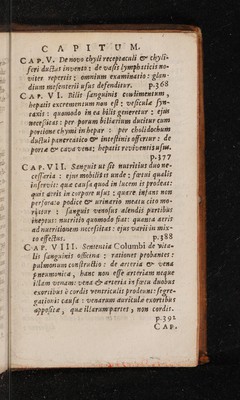 CAPITUM.
CAP. V. De novo chyli receptaculi & chyli-
feri ductus invento: de vasis lymphaticis le-
viter repertis; omnium examinatio: glan-
dium mesenterii usus defenditur. p.368
CAP. VI. Bilis sanguinis excrementum,
hepatis excrementum non est; vesiculæ fyn-
taxis: quomodo in ea bilis generetur; ejus
necessitas: per porum biliarium ductus cum
portione chymi in hepar: per cholidochum
ductui pancreatico & intestinis offertur: de
porta & cava vena; hepatis recipientis usus.
p.377
CAP. VII. Sanguis ut sit nutritius duo ne-
cessaria: ejus mobilitas unde; fœtui qualis
inservit: qua causa quod in lucem is prodeat:
quis aëris in corpore usus; quare infans non
perforato podice & urinario meatu cito mo-
ritur: sanguis venosus alendis partibus
ineptus: nutritio quomodo fiat: quanta aëris
ad nutritionem necessitas: ejus varii in mix-
to effectus. p.388
CAP. VIII. Sententia Columbi de vita-
lis sanguinis officina: rationes probantes:
pulmonum constructio: de arteria & vena
pneumonica, hanc non esse arteriam neque
illam venam: vena & arteria in fœtu duobus
exortibus è cordis ventriculis prodeunt: segre-
gationis causa: venarum auriculæ exortibus
appositæ, quæ illarum partes, non cordis.
p.392
CAP.